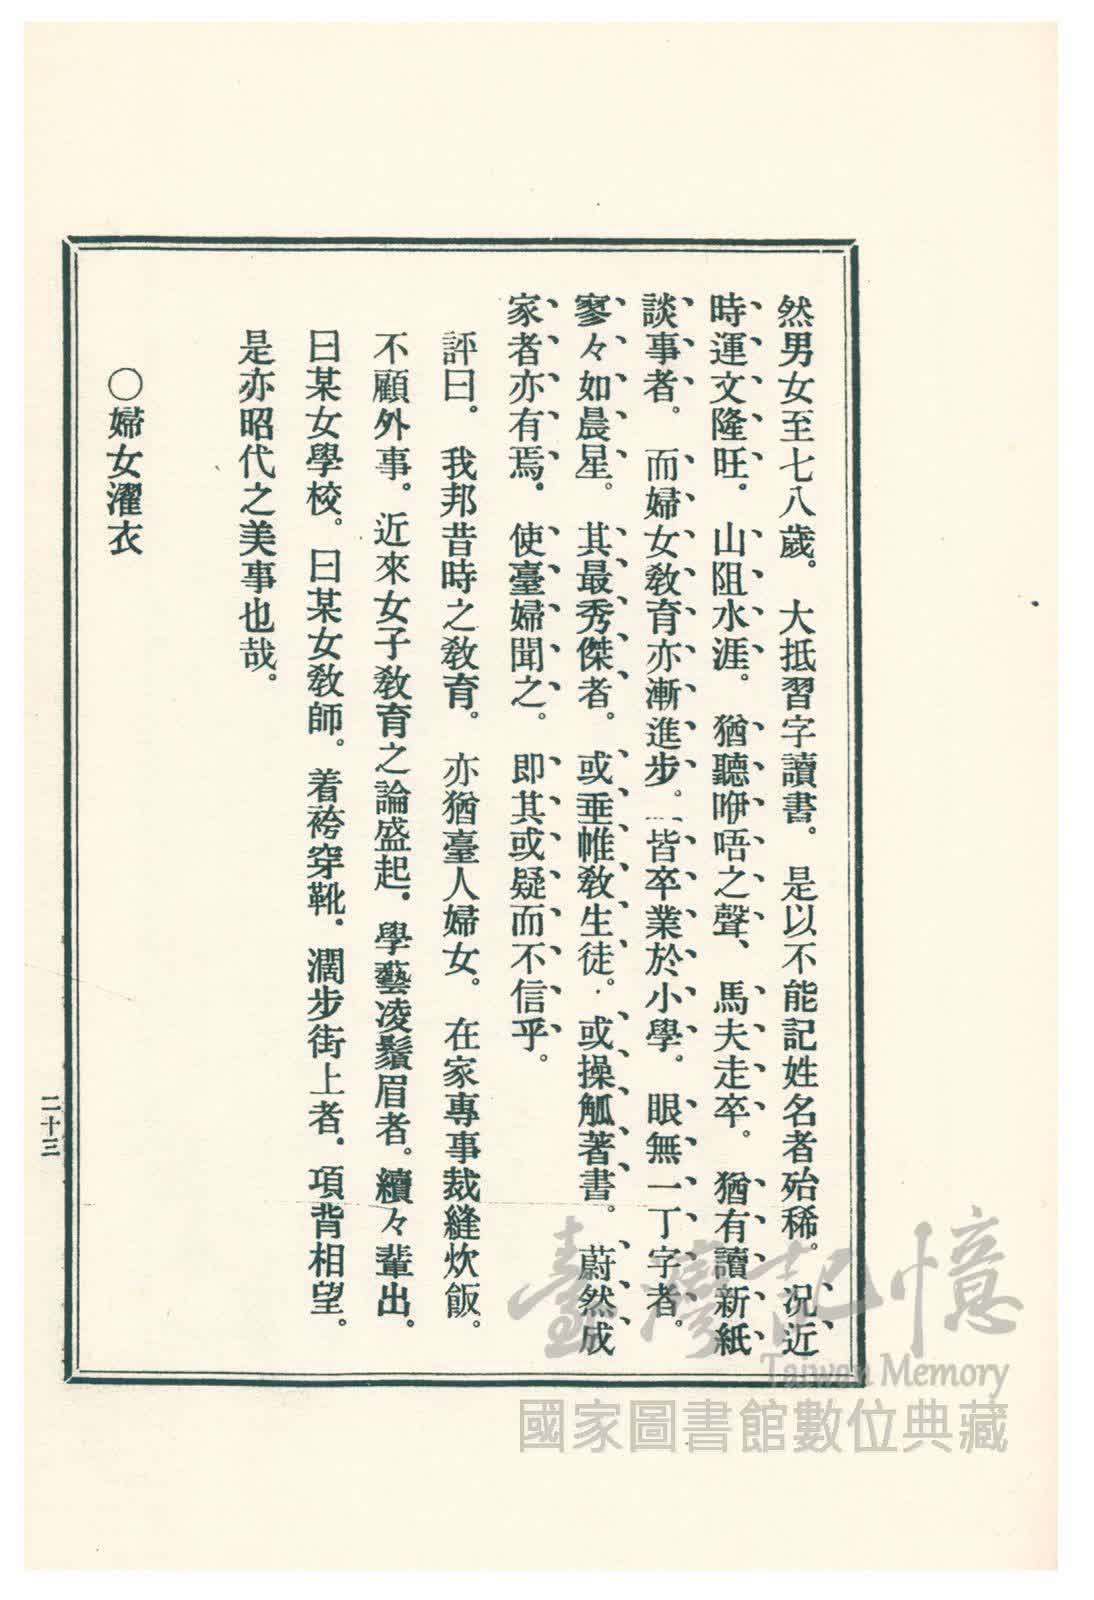 然男女至七八歲。大抵習字讀書。是以不能記姓名者殆稀。況近
時運文隆旺。山阻水涯。猶聽咿唔之聲、馬夫走卒。猶有讀新紙
談事者。而婦女教育亦漸進步。皆卒業於小學。眼無一丁字者。
寥々如晨星。其最秀傑者。或垂帷教生徒。或操觚著書。蔚然成
家者亦有焉。使臺婦聞之。即其或疑而不信乎。
評曰。我邦昔時之教育。亦猶臺人婦女。在家專事裁縫炊飯。
不顧外事。近來女子教育之論盛起。學藝凌鬚眉者。續々輩出。
曰某女學校。曰某女教師。着袴穿靴。濶步街上者。項背相望。
是亦昭代之美事也哉。
○婦女濯衣
二十三
臺灣記憶
Taiwan Memory
國家圖書館數位典藏